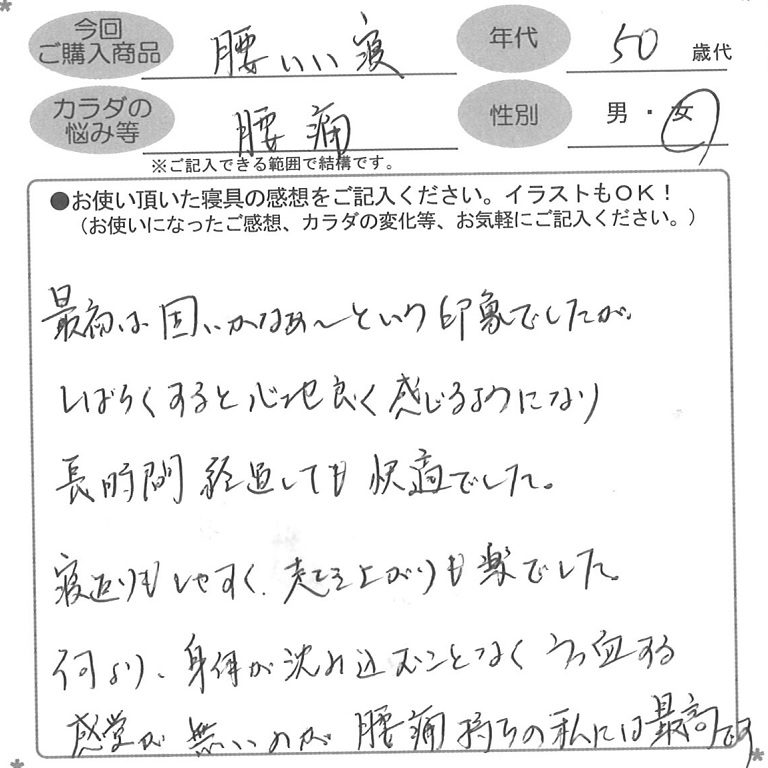 今回
ご購入商品 腰いい寝
年代 50 歳代
カラダの
悩み等 腰痛
性別 男・女
※ご記入できる範囲で結構です。
●お使い頂いた寝具の感想をご記入ください。イラストもOK！
（お使いになったご感想、カラダの変化等、お気軽にご記入ください。）
最初は固いかなぁ〜という印象でしたが、
しばらくすると心地良く感じるようになり
長時間経過しても快適でした。
寝返りもしやすく、起き上がりも楽でした。
何より、身体が沈み込むことなくうっ血する
感覚が無いのが腰痛持ちの私には最高です